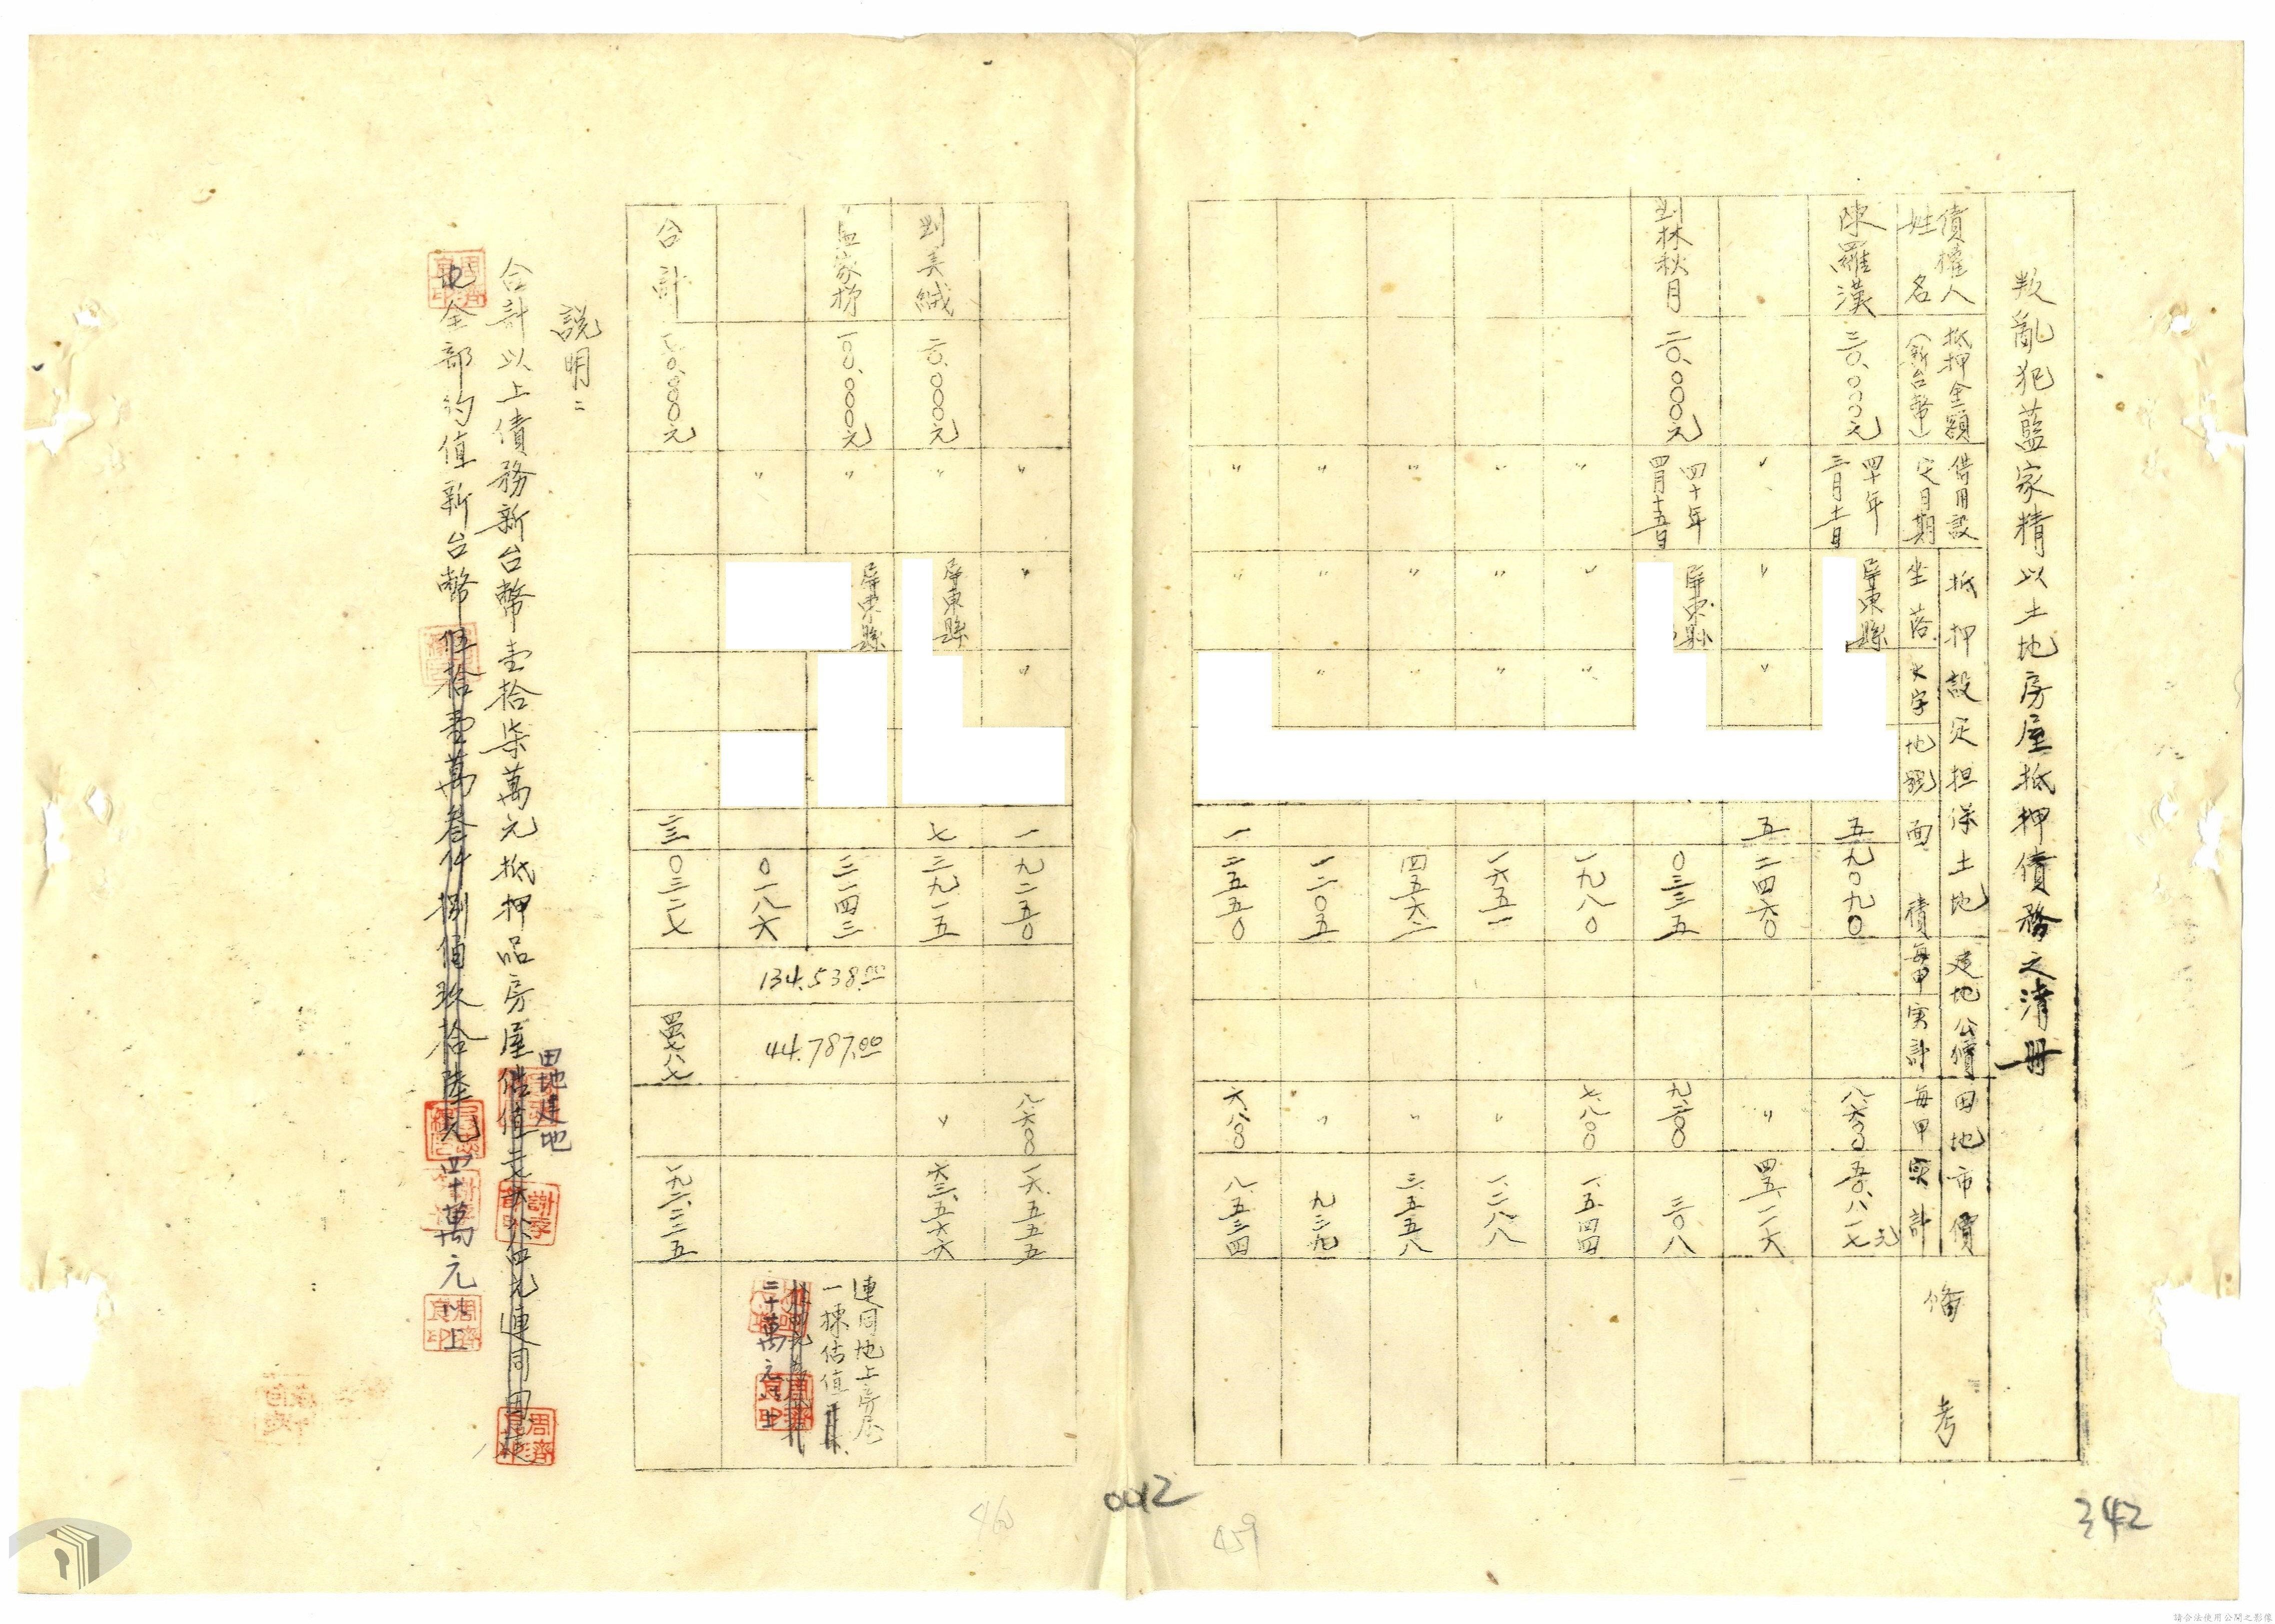 叛亂犯藍家精以土地房屋抵押債務之清冊
債權人姓名
抵押金額（新台幣）
借用設定日期
抵押設定担保土地
坐落
大字
地號
面積
建地公價
每甲
實計
田地市價
每甲
實計
備考
陳羅漢
三〇.〇〇〇元
四十年三月十一日
屏東縣
五九〇九〇
八.六〇〇
五〇.八一七元
〃
〃
〃
五二四六〇
〃
四五.一一六
劉林秋月
二〇.〇〇〇元
四十年四月十五日
屏東縣
〇三三五
九.二〇〇
三〇八
〃
〃
〃
一九八〇
七.八〇〇
一.五四四
〃
〃
〃
一六五一
〃
一.二八八
〃
〃
〃
四五六二
〃
三.五五八
〃
〃
〃
一二〇五
〃
九三九
〃
〃
一二五五〇
六.八〇〇
八.五三四
〃
〃
〃
一九二五〇
八.六〇〇
一六.五五五
劉美絨
二〇.〇〇〇元
〃
屏東縣
七三九一五
〃
六三.五六六
一〇〇.〇〇〇元
〃
屏東縣
三一四三
134.538.00
44.787.00
連同地上房屋
一棟估值
二十萬元以上
〃
〇一八六
合計
二三〇三二七
一九二.二二五
說明：
合計以上債務新台幣壹拾柒萬元抵押品房屋
田地建地
連同
地全部約值新台幣伍拾壹萬叁仟捌佰玖拾陸元四十萬元以上
周齊
謝李
周齊
0012
46
459
342
請合法使用公開之影像